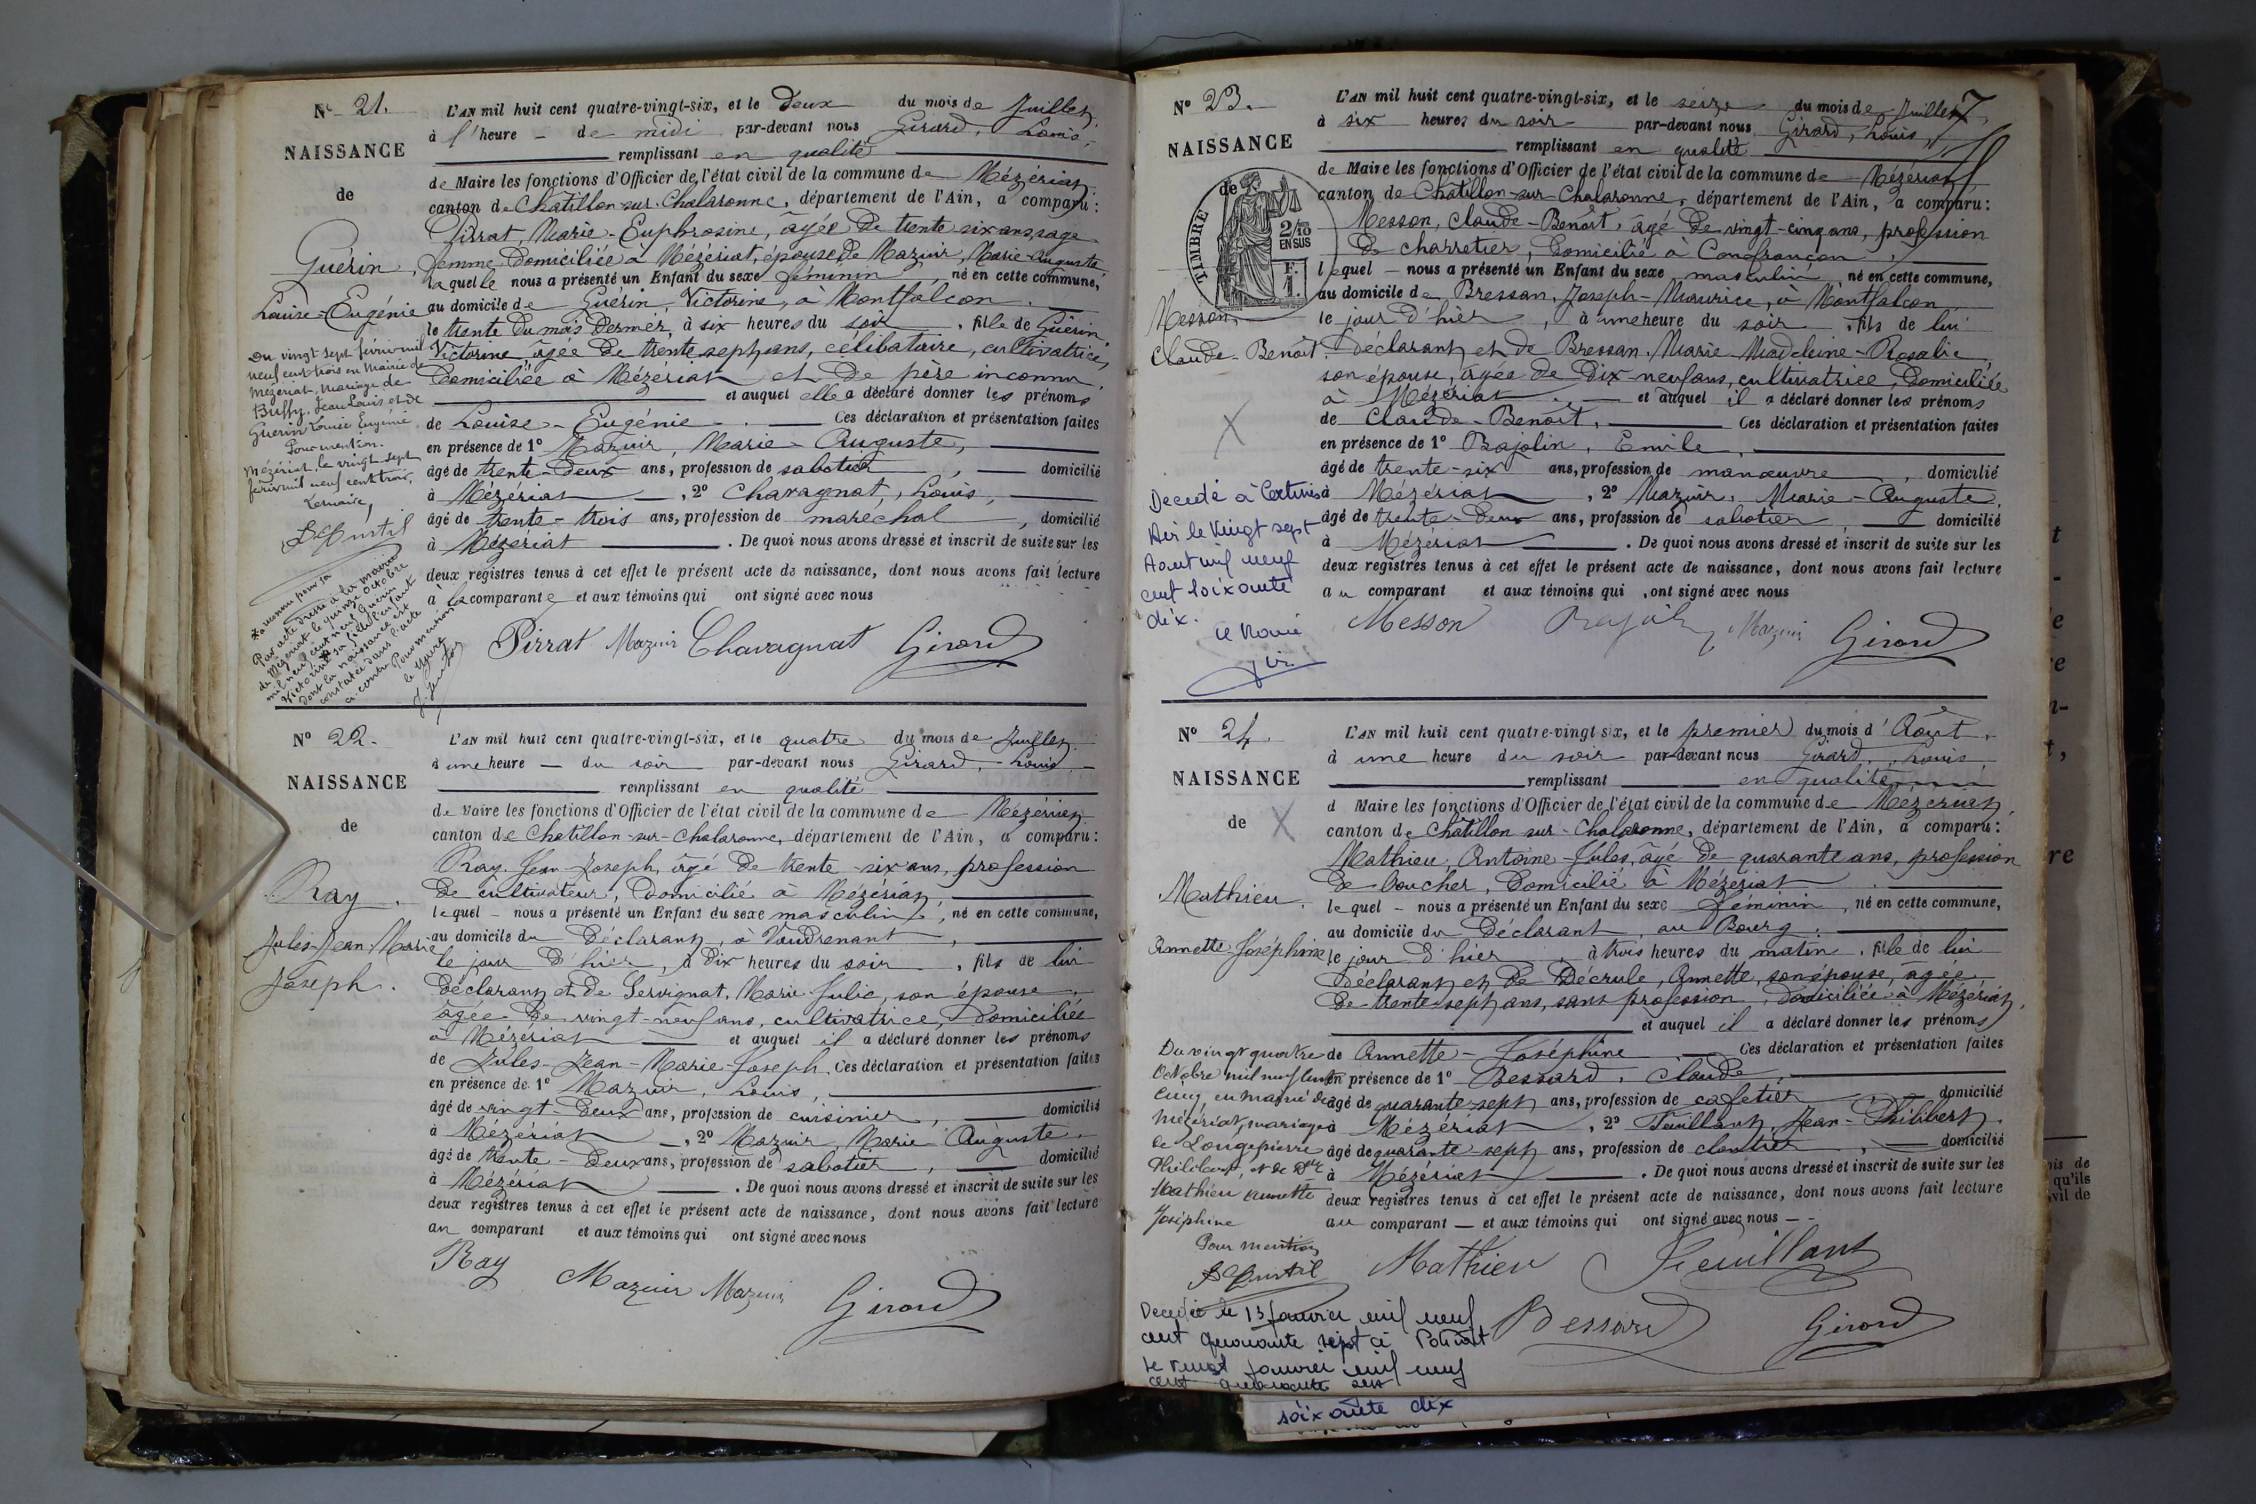 Nº 21.
NAISSANCE
de
Guérin,
Louise-Eugénie
Du vingt sept février mil
neuf cent trois en Mairie de
Mézériat, mariage de
Buffy, Jean Louis et de
Guérin Louise Eugénie
Pour mention.
Mézériat, le vingt-sept
février mil neuf cent trois,
Le maire,
Reconnu pour sa
Par acte dressé à la mairie
de Mézériat le quinze octobre
mil neuf cent neuf Guérin
Victorine sa fille l'enfant
dont la naissance est
constatée dans l'acte
ci-contre Pour mention
L'AN mil huit cent quatre-vingt-six, et le deux du mois de Juillet,
à l'heure – de midi par-devant nous Girard, Louis,
remplissant en qualité
de Maire les fonctions d'Officier de l'état civil de la commune de Mézériat,
canton de Chatillon-sur-Chalaronne, département de l'Ain, a comparu :
Pirrat, Marie-Euphrosine, âgée de trente six ans, sage
femme domiciliée à Mézériat, épouse de Mazuir, Marie-Auguste,
laquelle nous a présenté un Enfant du sexe féminin, né en cette commune,
au domicile de Guérin, Victorine, à Montfalcon.
le trente du mois dernier, à six heures du soir, fille de Guérin,
Victorine, âgée de trente sept ans, célibataire, cultivatrice,
domiciliée à Mézériat et de père inconnu,
et auquel elle a déclaré donner les prénoms
de Louise-Eugénie. Ces déclaration et présentation faites
en présence de 1º Mazuir, Marie-Auguste,
âgé de trente-deux ans, profession de sabotier, domicilié
à Mézériat, 2º Chavagnat, Louis,
âgé de trente-trois ans, profession de maréchal, domicilié
à Mézériat. De quoi nous avons dressé et inscrit de suite sur les
deux registres tenus à cet effet le présent acte de naissance, dont nous avons fait lecture
à la comparante et aux témoins qui ont signé avec nous
Pirrat Mazuir Chavagnat Girard
Nº 22.
NAISSANCE
de
Ray,
Jules-Jean-Marie
Joseph.
L'AN mil huit cent quatre-vingt-six, et le quatre du mois de Juillet,
à une heure – du soir par-devant nous Girard, Louis,
remplissant en qualité
de Maire les fonctions d'Officier de l'état civil de la commune de Mézériat,
canton de Chatillon-sur-Chalaronne, département de l'Ain, a comparu :
Ray, Jean-Joseph, âgé de trente-six ans, profession
de cultivateur, domicilié à Mézériat,
lequel – nous a présenté un Enfant du sexe masculin, né en cette commune,
au domicile du déclarant, à Vaudrenant,
le jour d'hier, à dix heures du soir, fils de lui
déclarant et de Servignat, Marie-Julie, son épouse,
âgée de vingt-neuf ans, cultivatrice, domiciliés
à Mézériat et auquel il a déclaré donner les prénoms
de Jules-Jean-Marie-Joseph. Ces déclaration et présentation faites
en présence de 1º Mazuir, Louis,
âgé de vingt-deux ans, profession de cuisinier, domicilié
à Mézériat, 2º Mazuir, Marie Auguste,
âgé de trente-deux ans, profession de sabotier, domicilié
à Mézériat. De quoi nous avons dressé et inscrit de suite sur les
deux registres tenus à cet effet le présent acte de naissance, dont nous avons fait lecture
au comparant et aux témoins qui ont signé avec nous
Ray Mazuir Mazuir Girard
7
Nº 23.
NAISSANCE
de
TIMBRE
2/10
EN SUS
F.
1.
Messon,
Claude-Benoît.
X
Décédé à Certines
Hier le vingt sept
Aout mil neuf
cent soixante
dix.
L'AN mil huit cent quatre-vingt-six, et le seize du mois de Juillet,
à six heures du soir par-devant nous Girard, Louis,
remplissant en qualité
de Maire les fonctions d'Officier de l'état civil de la commune de Mézériat,
canton de Chatillon-sur-Chalaronne, département de l'Ain, a comparu :
Messon, Claude-Benoît, âgé de vingt-cinq ans, profession
de charretier, domicilié à Confrançon,
lequel – nous a présenté un Enfant du sexe masculin, né en cette commune,
au domicile de Bressan, Joseph-Maurice, à Montfalcon
le jour d'hier, à une heure du soir, fils de lui
déclarant et de Bressan, Marie-Madeleine-Rosalie
son épouse, âgée de dix-neuf ans, cultivatrice, domiciliée
à Mézériat et auquel il a déclaré donner les prénoms
de Claude-Benoît. Ces déclaration et présentation faites
en présence de 1º Bajolin, Emile,
âgé de trente-six ans, profession de manœuvre, domicilié
à Mézériat, 2º Mazuir, Marie-Auguste,
âgé de trente-deux ans, profession de sabotier, domicilié
à Mézériat. De quoi nous avons dressé et inscrit de suite sur les
deux registres tenus à cet effet le présent acte de naissance, dont nous avons fait lecture
au comparant et aux témoins qui ont signé avec nous
Messon Mazuir Girard
Nº 24.
NAISSANCE
de X
Mathieu,
Annette-Joséphine
Du vingt quatre
Octobre mil neuf cent
cinq, en mairie de
Mézériat, mariage
de Longepierre
Philibert, et de Dlle
Mathieu Annette
Joséphine
Pour mention
Décédée le 13 Janvier mil neuf
cent quarante sept à Polliat
le vingt janvier mil neuf
cent quarante sept
L'AN mil huit cent quatre-vingt-six, et le premier du mois d'Août,
à une heure du soir par-devant nous Girard, Louis,
remplissant en qualité
d Maire les fonctions d'Officier de l'état civil de la commune de Mézériat,
canton de Châtillon-sur-Chalaronne, département de l'Ain, a comparu :
Mathieu, Antoine-Jules, âgé de quarante ans, profession
de boucher, domicilié à Mézériat
lequel – nous a présenté un Enfant du sexe féminin, né en cette commune,
au domicile du déclarant, au Bourg,
le jour d'hier à trois heures du matin, fille de lui
déclarant et de Décrule, Annette, son épouse, âgée
de trente-sept ans, sans profession, domiciliée à Mézériat,
et auquel il a déclaré donner les prénoms
de Annette-Joséphine Ces déclaration et présentation faites
en présence de 1º Bessard, Claude,
âgé de quarante-sept ans, profession de cafetier domicilié
à Mézériat, 2º Feuillant, Jean-Philibert,
âgé de quarante-sept ans, profession de cloutier, domicilié
à Mézériat. De quoi nous avons dressé et inscrit de suite sur les
deux registres tenus à cet effet le présent acte de naissance, dont nous avons fait lecture
au comparant – et aux témoins qui ont signé avec nous –
Mathieu Feuillant
Bessard Girard
soixante dix